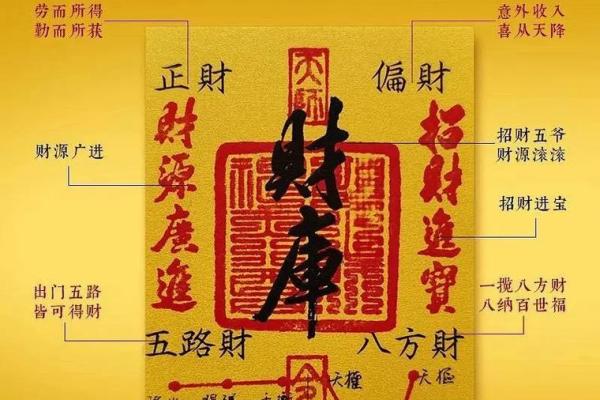 劳而所得
勤而所获
意外收入
喜从天降
正財
偏財
天師
財源廣進
財庫
招財進寶
财源广进
招财五爷
财源滚滚
招财进宝
出门五路
皆可得财
一揽八方财
八纳百世福
五路財
八方財
天權
天樞